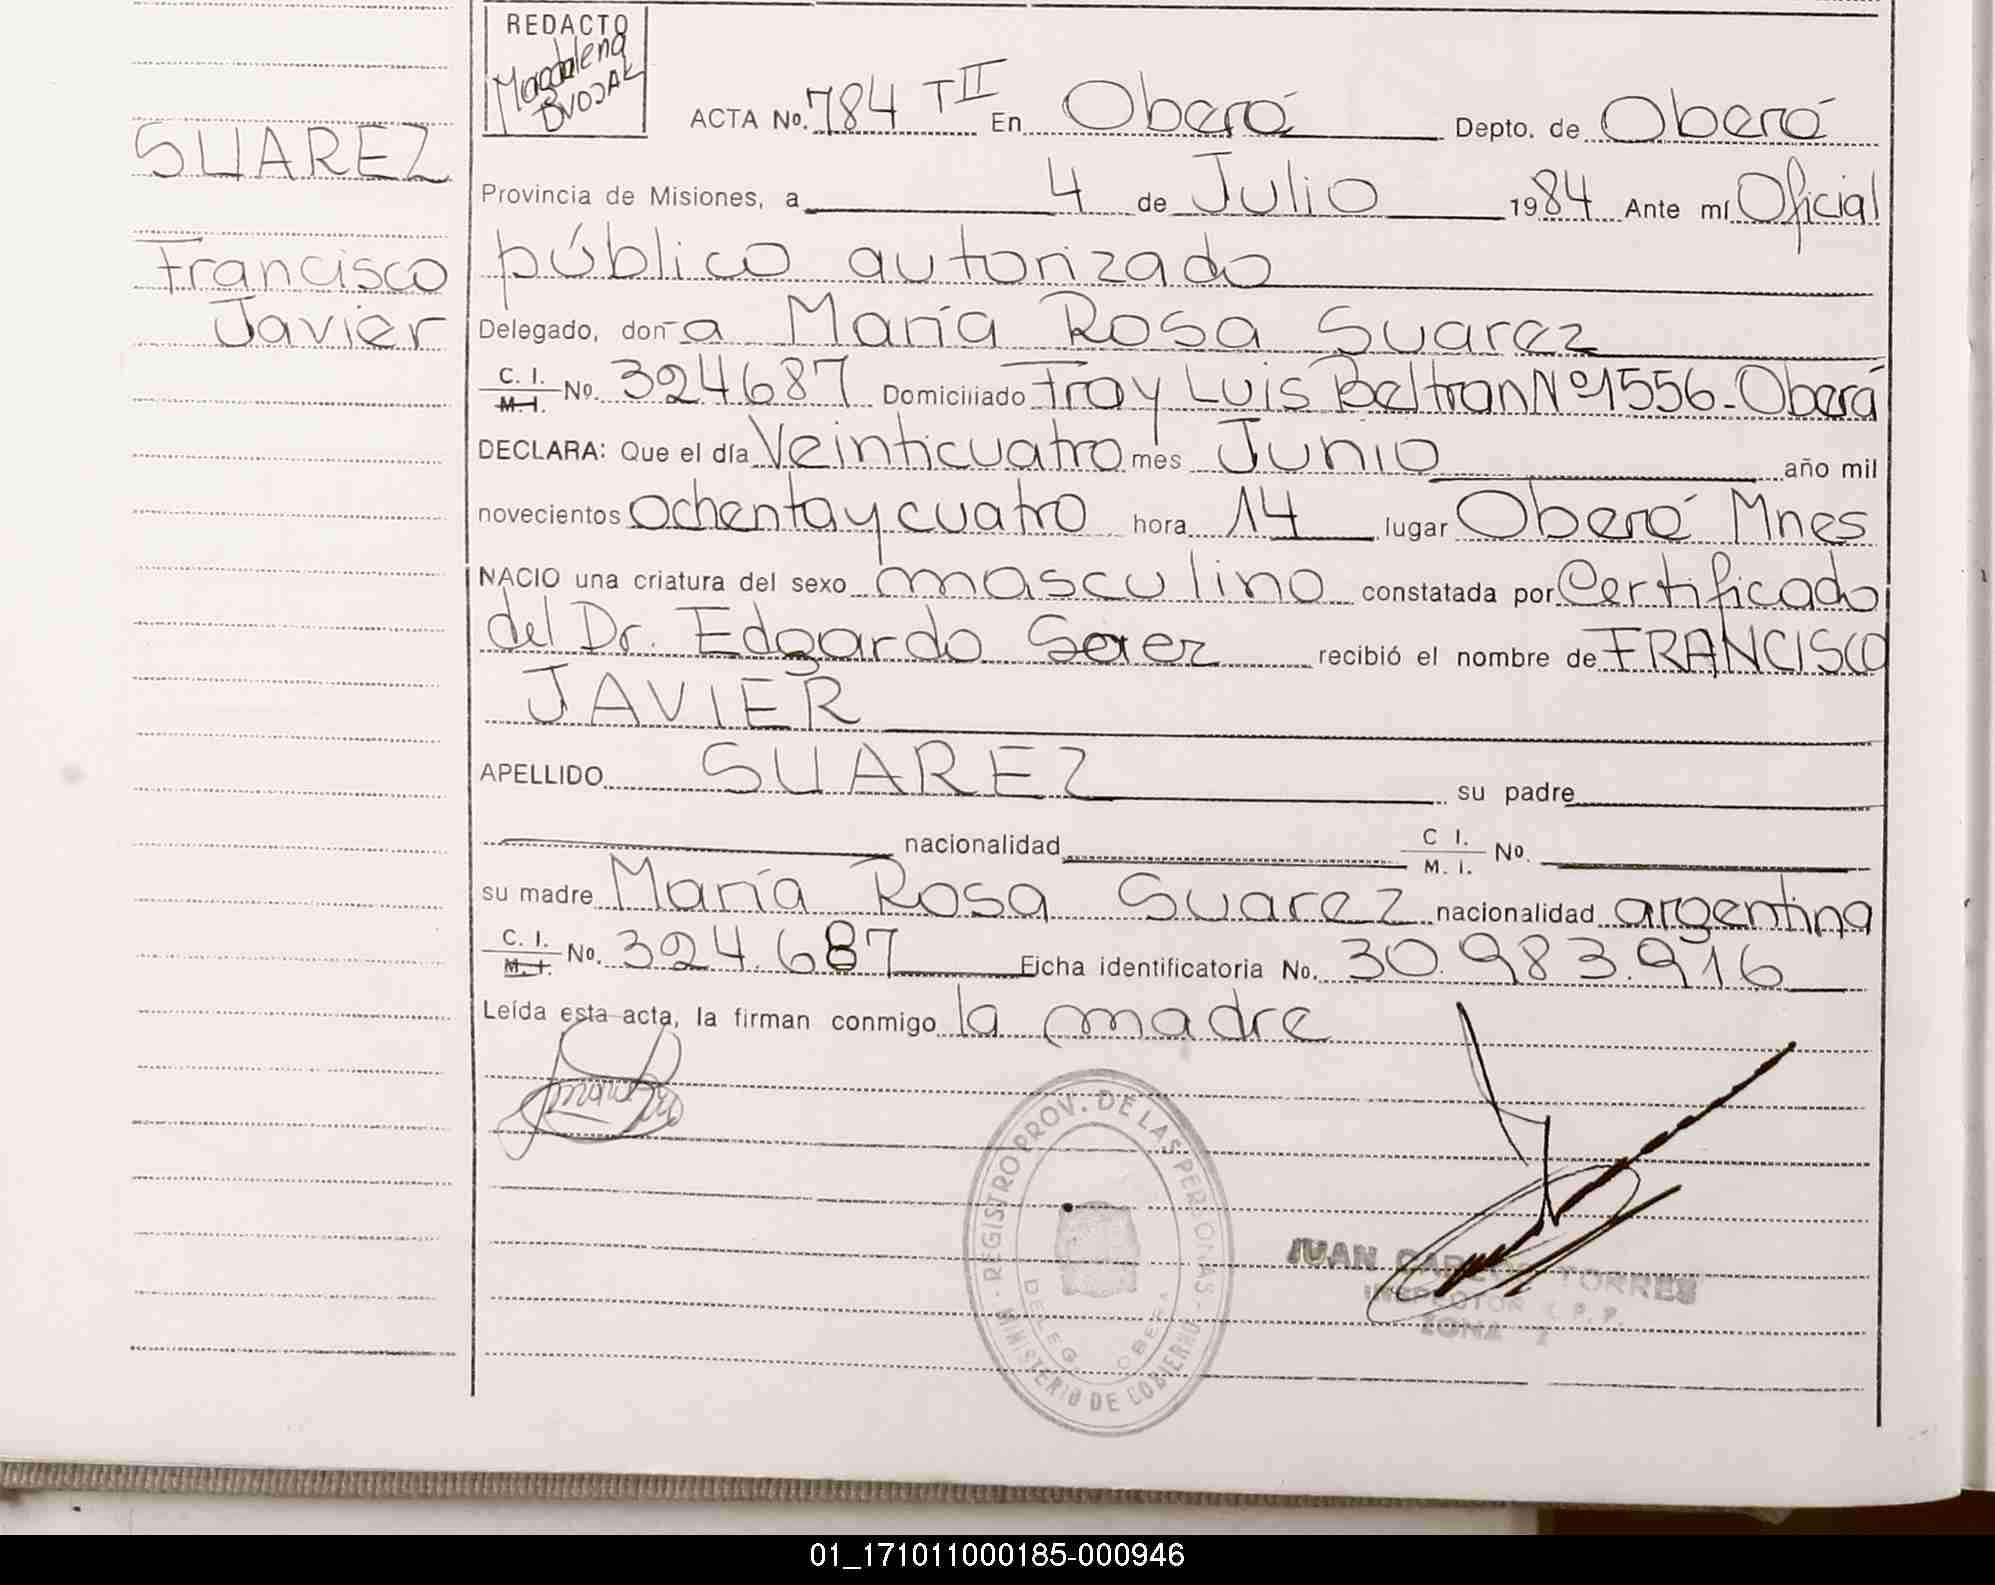 REDACTO
Magdalena
BVOJAK
ACTA No. 784 TII En Oberá Depto. de Oberá
SUAREZ
Provincia de Misiones, a 4 de Julio 1984 Ante mí Oficial
público autorizado
Francisco
Javier
Delegado, don-a María Rosa Suarez
C. I. M. I. No. 324687 Domiciliado Fray Luis Beltran Nº 1556-Oberá
DECLARA: Que el día Veinticuatro mes Junio año mil
novecientos ochenta y cuatro hora 14 lugar Oberá Mnes
NACIO una criatura del sexo masculino constatada por Certificado
del Dr. Edgardo Saer recibió el nombre de FRANCISCO
JAVIER
APELLIDO SUAREZ su padre
nacionalidad C I. M. I. No.
su madre María Rosa Suarez nacionalidad argentina
C. I. M. I. No. 324.687 Ficha identificatoria No. 30.983.916
Leída esta acta, la firman conmigo la madre
REGISTRO PROV. DE LAS PERSONAS
MINISTERIO DE GOBIERNO
DELEG. OBERA
JUAN CARLOS TORRES
INSPECTOR R. P. P.
ZONA 2
01_171011000185-000946